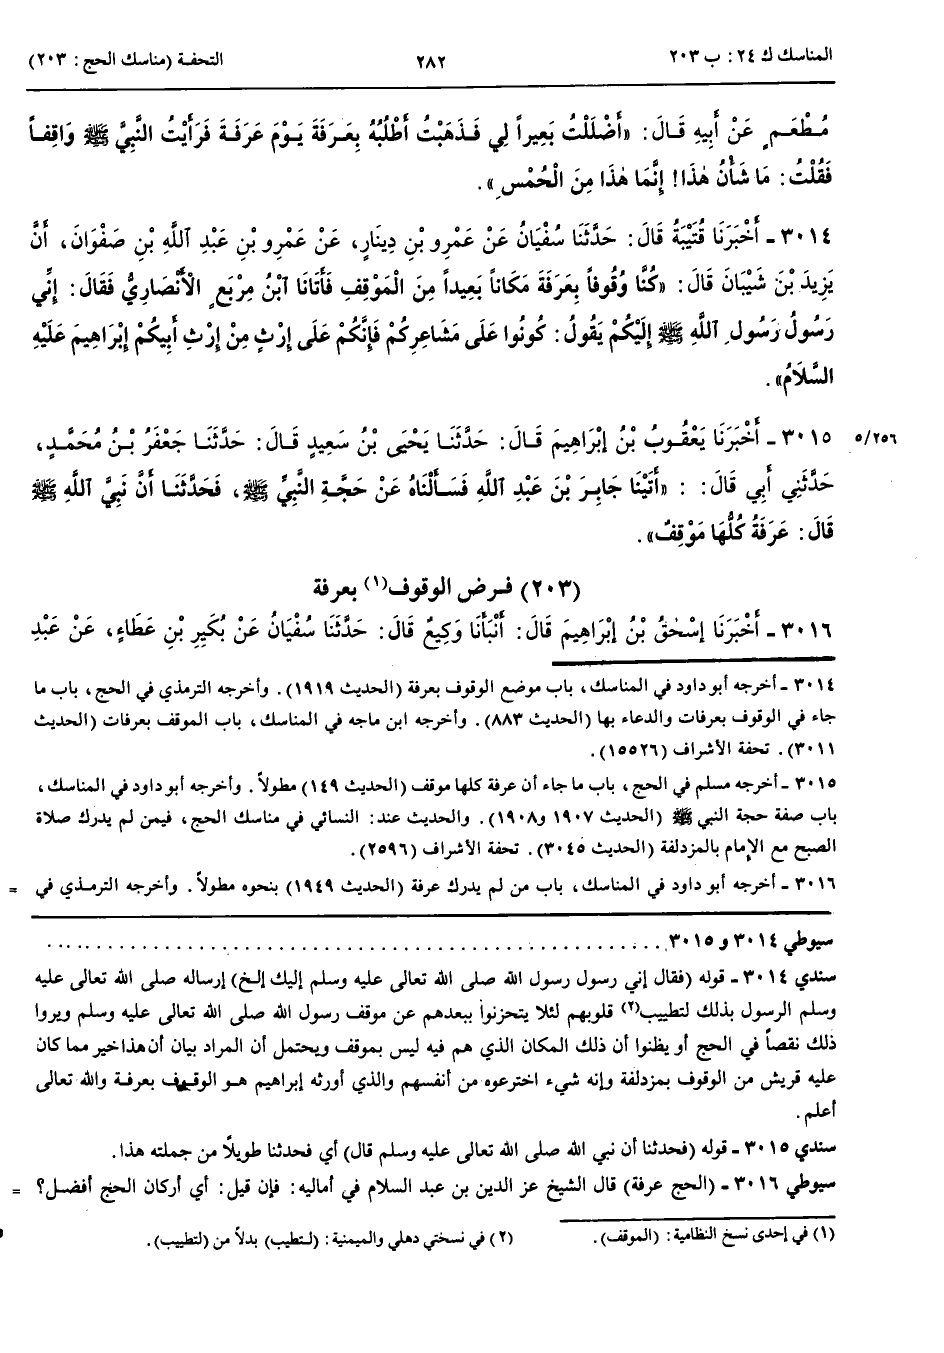 المناسك ك ٢٤: ب ٢٠٣
٢٨٢
التحفة (مناسك الحج: ٢٠٣)
مُطْعَمٍ عَنْ أَبِيهِ قَالَ: «أَضْلَلْتُ بَعِيراً لِي فَذَهَبْتُ أَطْلُبُهُ بِعَرَفَةَ يَوْمَ عَرَفَةَ فَرَأَيْتُ النَّبِيَّ ﷺ وَاقِفاً
فَقُلْتُ: مَا شَأْنُ هٰذَا! إِنَّمَا هٰذَا مِنَ الْحُمْسِ».
٣٠١٤ ـ أَخْبَرَنَا قُتَيْبَةُ قَالَ: حَدَّثَنَا سُفْيَانُ عَنْ عَمْرِو بْنِ دِينَارٍ، عَنْ عَمْرِو بْنِ عَبْدِ ٱللَّهِ بْنِ صَفْوَانَ، أَنَّ
يَزِيدَ بْنَ شَيْبَانَ قَالَ: «كُنَّا وُقُوفاً بِعَرَفَةَ مَكَاناً بَعِيداً مِنَ الْمَوْقِفِ فَأَتَانَا ٱبْنُ مِرْبَعٍ الْأَنْصَارِيُّ فَقَالَ: إِنِّي
رَسُولُ رَسُولِ ٱللَّهِ ﷺ إِلَيْكُمْ يَقُولُ: كُونُوا عَلَى مَشَاعِرِكُمْ فَإِنَّكُمْ عَلَى إِرْثٍ مِنْ إِرْثِ أَبِيكُمْ إِبْرَاهِيمَ عَلَيْهِ
السَّلَامُ».
٣٠١٥ ـ أَخْبَرَنَا يَعْقُوبُ بْنُ إِبْرَاهِيمَ قَالَ: حَدَّثَنَا يَحْيَى بْنُ سَعِيدٍ قَالَ: حَدَّثَنَا جَعْفَرُ بْنُ مُحَمَّدٍ،
٥/٢٥٦
حَدَّثَنِي أَبِي قَالَ: : «أَتَيْنَا جَابِرَ بْنَ عَبْدِ ٱللَّهِ فَسَأَلْنَاهُ عَنْ حَجَّةِ النَّبِيِّ ﷺ، فَحَدَّثَنَا أَنَّ نَبِيَّ ٱللَّهِ ﷺ
قَالَ: عَرَفَةُ كُلُّهَا مَوْقِفٌ».
(٢٠٣) فرض الوقوف(١) بعرفة
٣٠١٦ ـ أَخْبَرَنَا إِسْحٰقُ بْنُ إِبْرَاهِيمَ قَالَ: أَنْبَأَنَا وَكِيعٌ قَالَ: حَدَّثَنَا سُفْيَانُ عَنْ بُكَيْرِ بْنِ عَطَاءٍ، عَنْ عَبْدِ
٣٠١٤ ـ أخرجه أبو داود في المناسك، باب موضع الوقوف بعرفة (الحديث ١٩١٩). وأخرجه الترمذي في الحج، باب ما
جاء في الوقوف بعرفات والدعاء بها (الحديث ٨٨٣). وأخرجه ابن ماجه في المناسك، باب الموقف بعرفات (الحديث
٣٠١١). تحفة الأشراف (١٥٥٢٦).
٣٠١٥ ـ أخرجه مسلم في الحج، باب ما جاء أن عرفة كلها موقف (الحديث ١٤٩) مطولاً. وأخرجه أبو داود في المناسك،
باب صفة حجة النبي ﷺ (الحديث ١٩٠٧ و١٩٠٨). والحديث عند: النسائي في مناسك الحج، فيمن لم يدرك صلاة
الصبح مع الإمام بالمزدلفة (الحديث ٣٠٤٥). تحفة الأشراف (٢٥٩٦).
٣٠١٦ ـ أخرجه أبو داود في المناسك، باب من لم يدرك عرفة (الحديث ١٩٤٩) بنحوه مطولاً. وأخرجه الترمذي في =
سيوطي ٣٠١٤ و ٣٠١٥ ........................................
سندي ٣٠١٤ ـ قوله (فقال إني رسول رسول الله صلى الله تعالى عليه وسلم إليك إلخ) إرساله صلى الله تعالى عليه
وسلم الرسول بذلك لتطييب(٢) قلوبهم لئلا يتحزنوا ببعدهم عن موقف رسول الله صلى الله تعالى عليه وسلم ويروا
ذلك نقصاً في الحج أو يظنوا أن ذلك المكان الذي هم فيه ليس بموقف ويحتمل أن المراد بيان أن هذا خير مما كان
عليه قريش من الوقوف بمزدلفة وإنه شيء اخترعوه من أنفسهم والذي أورثه إبراهيم هو الوقوف بعرفة والله تعالى
أعلم.
سندي ٣٠١٥ ـ قوله (فحدثنا أن نبي الله صلى الله تعالى عليه وسلم قال) أي فحدثنا طويلاً من جملته هذا.
سيوطي ٣٠١٦ ـ (الحج عرفة) قال الشيخ عز الدين بن عبد السلام في أماليه: فإن قيل: أي أركان الحج أفضل؟ =
(١) في إحدى نسخ النظامية: (الموقف).
(٢) في نسختي دهلي والميمنية: (لتطيب) بدلاً من (لتطييب).